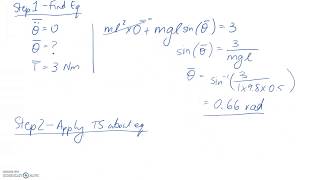 Step 1 - Find Eq
θ̈ = 0
θ̄ = ?
T̄ = 3 Nm
ml² × 0 + mgl sin(θ̄) = 3
sin(θ̄) = 3/mgl
θ̄ = sin⁻¹(3/1×9.8×0.5)
= 0.66 rad
Step 2 - Apply TS about eq